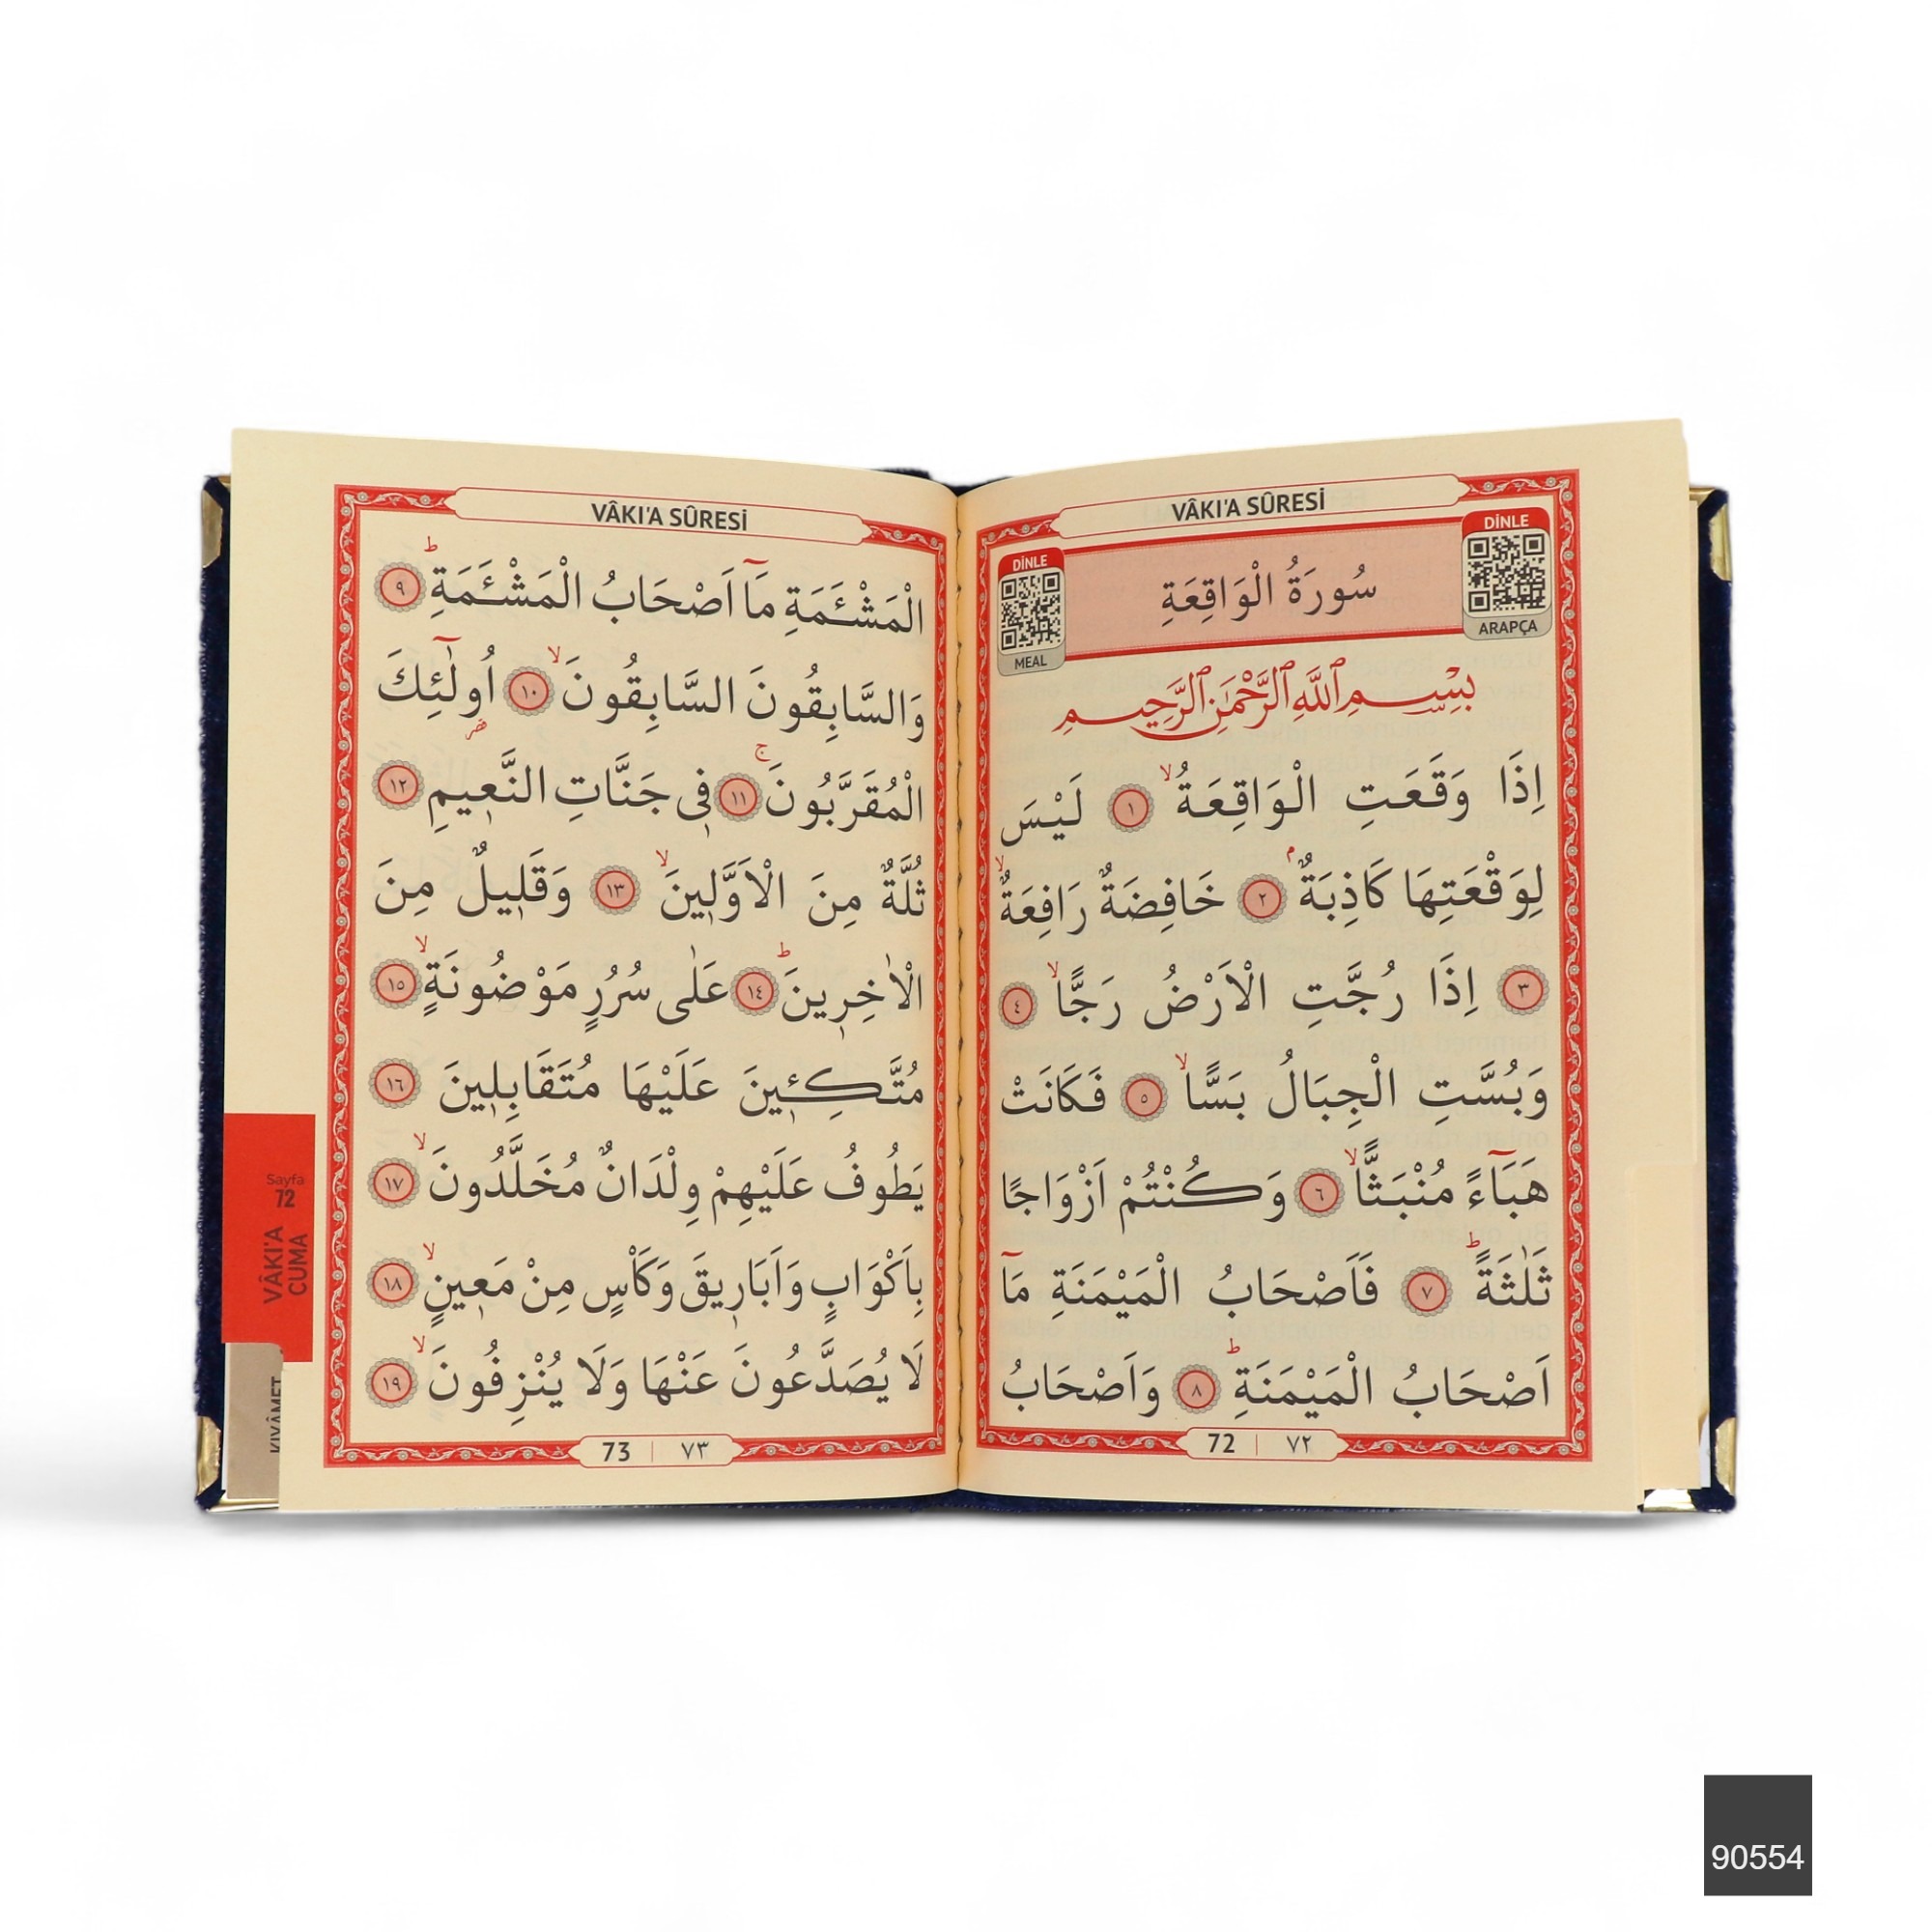 VÂKI'A SÛRESİ
DİNLE
ARAPÇA
سُورَةُ الْوَاقِعَةِ
DİNLE
MEAL
بِسْمِ ٱللَّهِ ٱلرَّحْمَٰنِ ٱلرَّحِيمِ
اِذَا وَقَعَتِ الْوَاقِعَةُۙ ١ لَيْسَ
لِوَقْعَتِهَا كَاذِبَةٌۢ ٢ خَافِضَةٌ رَافِعَةٌۙ
٣ اِذَا رُجَّتِ الْاَرْضُ رَجًّاۙ ٤
وَبُسَّتِ الْجِبَالُ بَسًّاۙ ٥ فَكَانَتْ
هَبَٓاءً مُنْبَثًّاۙ ٦ وَكُنْتُمْ اَزْوَاجًا
ثَلٰثَةًۜ ٧ فَاَصْحَابُ الْمَيْمَنَةِ مَٓا
اَصْحَابُ الْمَيْمَنَةِۜ ٨ وَاَصْحَابُ
72 | ٧٢
VÂKI'A SÛRESİ
الْمَشْـَٔمَةِ مَٓا اَصْحَابُ الْمَشْـَٔمَةِۜ ٩
وَالسَّابِقُونَ السَّابِقُونَۙ ١٠ اُو۬لٰٓئِكَ
الْمُقَرَّبُونَۚ ١١ ف۪ي جَنَّاتِ النَّع۪يمِ ١٢
ثُلَّةٌ مِنَ الْاَوَّل۪ينَۙ ١٣ وَقَل۪يلٌ مِنَ
الْاٰخِر۪ينَۜ ١٤ عَلٰى سُرُرٍ مَوْضُونَةٍۙ ١٥
مُتَّكِـ۪ٔينَ عَلَيْهَا مُتَقَابِل۪ينَ ١٦
يَطُوفُ عَلَيْهِمْ وِلْدَانٌ مُخَلَّدُونَۙ ١٧
بِاَكْوَابٍ وَاَبَار۪يقَ وَكَأْسٍ مِنْ مَع۪ينٍۙ ١٨
لَا يُصَدَّعُونَ عَنْهَا وَلَا يُنْزِفُونَۙ ١٩
73 | ٧٣
Sayfa
72
VÂKI'A
CUMA
KIYÂMET
90554